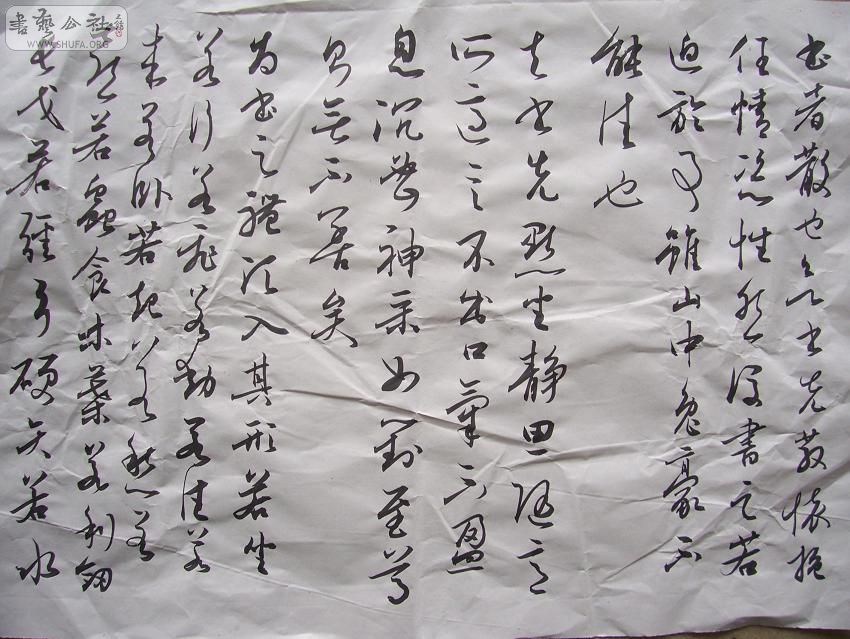 書藝公社
WWW.SHUFA.ORG
書者散也欲書先散懷抱
任情恣性然後書之若
迫於事雖山中兔豪不
能佳也
夫書先默坐靜思隨意
所適言不出口氣不盈
息沉密神采如對至尊
則無不善矣
為書之體須入其形若坐
若行若飛若動若往若
來若臥若起若愁若
喜若蟲食木葉若利劍
長戈若強弓硬矢若水